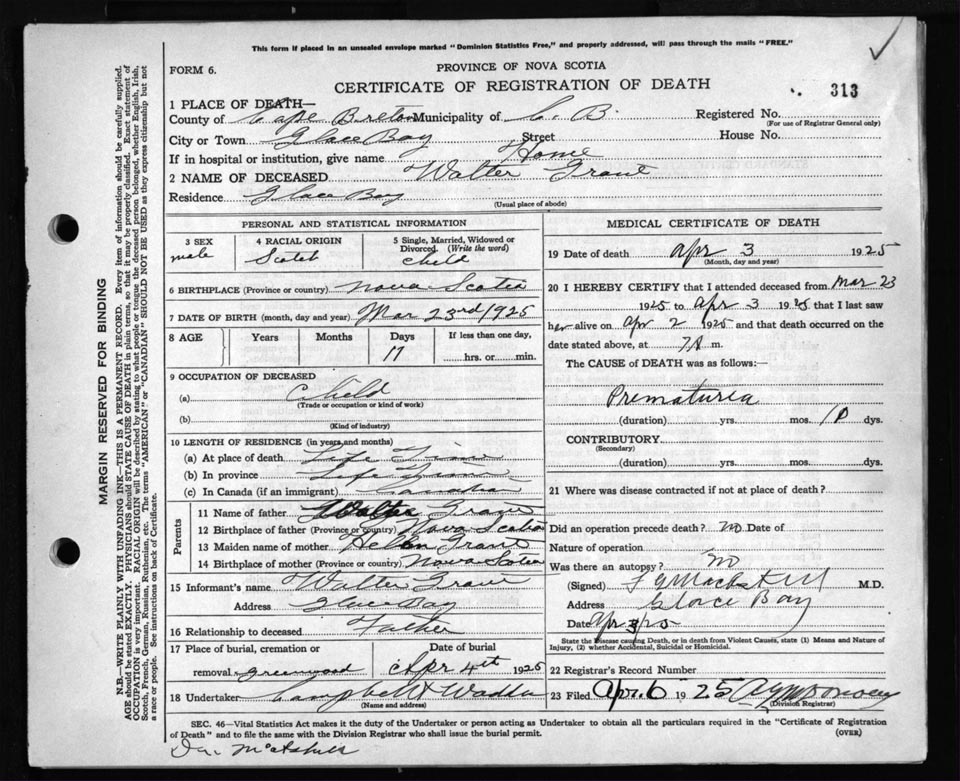 This form if placed in an unsealed envelope marked "Dominion Statistics Free," and properly addressed, will pass through the mails "FREE."
FORM 6.
PROVINCE OF NOVA SCOTIA
CERTIFICATE OF REGISTRATION OF DEATH
313
1 PLACE OF DEATH—
County of Cape Breton Municipality of C. B. Registered No.
(For use of Registrar General only)
City or Town Glace Bay Street House No.
If in hospital or institution, give name Home
2 NAME OF DECEASED Walter Grant
Residence Glace Bay
(Usual place of abode)
PERSONAL AND STATISTICAL INFORMATION
3 SEX male
4 RACIAL ORIGIN Scotch
5 Single, Married, Widowed or Divorced. (Write the word) Child
6 BIRTHPLACE (Province or country) Nova Scotia
7 DATE OF BIRTH (month, day and year) Mar 23rd/1925
8 AGE Years Months Days If less than one day,
17 hrs. or min.
9 OCCUPATION OF DECEASED
(a) Child
(Trade or occupation or kind of work)
(b)
(Kind of industry)
10 LENGTH OF RESIDENCE (in years, and months)
(a) At place of death Life Time
(b) In province Life Time
(c) In Canada (if an immigrant) Canada
Parents
11 Name of father Walter Grant
12 Birthplace of father (Province or country) Nova Scotia
13 Maiden name of mother Hellen Grant
14 Birthplace of mother (Province or country) Nova Scotia
15 Informant's name Walter Grant
Address Glace Bay
16 Relationship to deceased Father
17 Place of burial, cremation or removal Greenwood
Date of burial Apr 4th 1925
18 Undertaker Campbell & Wadden
(Name and address)
MEDICAL CERTIFICATE OF DEATH
19 Date of death Apr 3 1925
(Month, day and year)
20 I HEREBY CERTIFY that I attended deceased from Mar 23
1925 to Apr 3 1925 that I last saw
her alive on Apr 2 1925 and that death occurred on the
date stated above, at 7A m.
The CAUSE of DEATH was as follows:
Prematuria
(duration) yrs. mos. 10 dys.
CONTRIBUTORY
(Secondary)
(duration) yrs. mos. dys.
21 Where was disease contracted if not at place of death?
Did an operation precede death? no Date of
Nature of operation
Was there an autopsy? no
(Signed) M.D.
Address Glace Bay
Date Apr 3/25
State the Disease causing Death, or in death from Violent Causes, state (1) Means and Nature of
Injury, (2) whether Accidental, Suicidal or Homicidal.
22 Registrar's Record Number
23 Filed Apr. 6 1925
(Division Registrar)
SEC. 46—Vital Statistics Act makes it the duty of the Undertaker or person acting as Undertaker to obtain all the particulars required in the "Certificate of Registration
of Death" and to file the same with the Division Registrar who shall issue the burial permit.
(OVER)
MARGIN RESERVED FOR BINDING
N.B.—WRITE PLAINLY WITH UNFADING INK—THIS IS A PERMANENT RECORD. Every item of information should be carefully supplied.
AGE should be stated EXACTLY. PHYSICIANS should STATE CAUSE OF DEATH in plain terms, so that it may be properly classified. Exact statement of
OCCUPATION is very important. RACIAL ORIGIN will be described by stating to what people or tongue the deceased person belonged, whether English, Irish,
Scotch, French, German, Russian, Ruthenian, etc. The terms "AMERICAN" or "CANADIAN" SHOULD NOT BE USED as they express citizenship but not
a race or people. See instructions on back of Certificate.